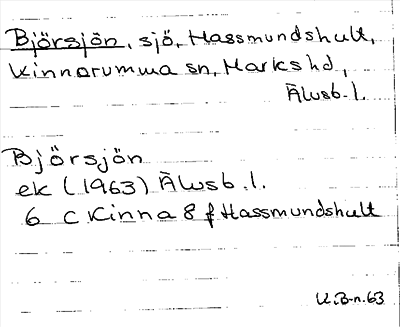 Björsjön, sjö, Hassmundshult,
Kinnarumma sn, Marks hd,
Älvsb. l.
Björsjön
ek (1963) Älvsb. l.
6 C Kinna 8 f Hassmundshult
U.B-n.63